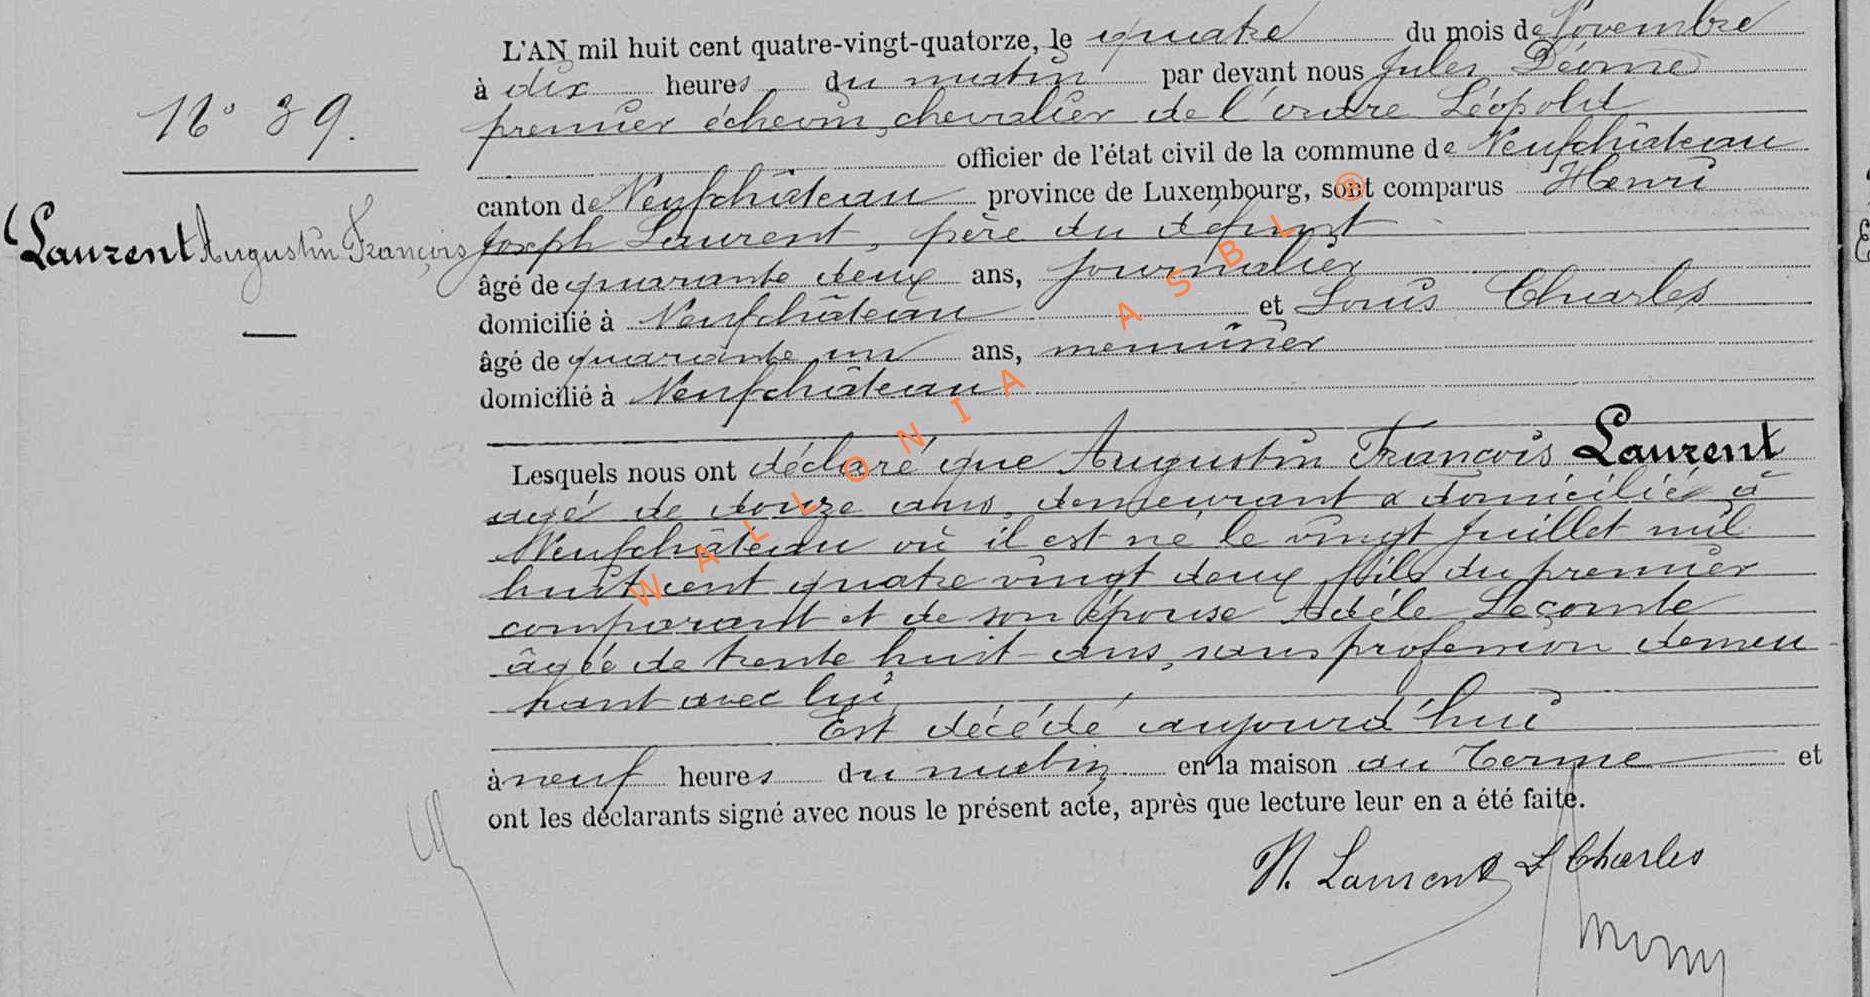 L'AN mil huit cent quatre-vingt-quatorze, le quatre du mois de Novembre
à dix heures du matin par devant nous Jules
N° 39.
premier échevin, chevalier de l'ordre Léopold
officier de l'état civil de la commune de Neufchâteau
canton de Neufchâteau province de Luxembourg, sont comparus Henri
Laurent Augustin François
Joseph Laurent, père du défunt
âgé de quarante deux ans, journalier
domicilié à Neufchâteau et Louis Charles
âgé de quarante un ans, menuisier
domicilié à Neufchâteau
Lesquels nous ont déclaré que Augustin François Laurent
agé de douze ans, demeurant & domicilié à
Neufchâteau où il est né le vingt juillet mil
huit cent quatre vingt deux fils du premier
comparant et de son épouse Adèle Lecomte
âgée de trente huit ans, sans profession demeu-
rant avec lui
Est décédé aujourd'hui
à neuf heures du matin en la maison au Terme et
ont les déclarants signé avec nous le présent acte, après que lecture leur en a été faite.
H. Laurent L Charles
WALLONIA ASBL ®